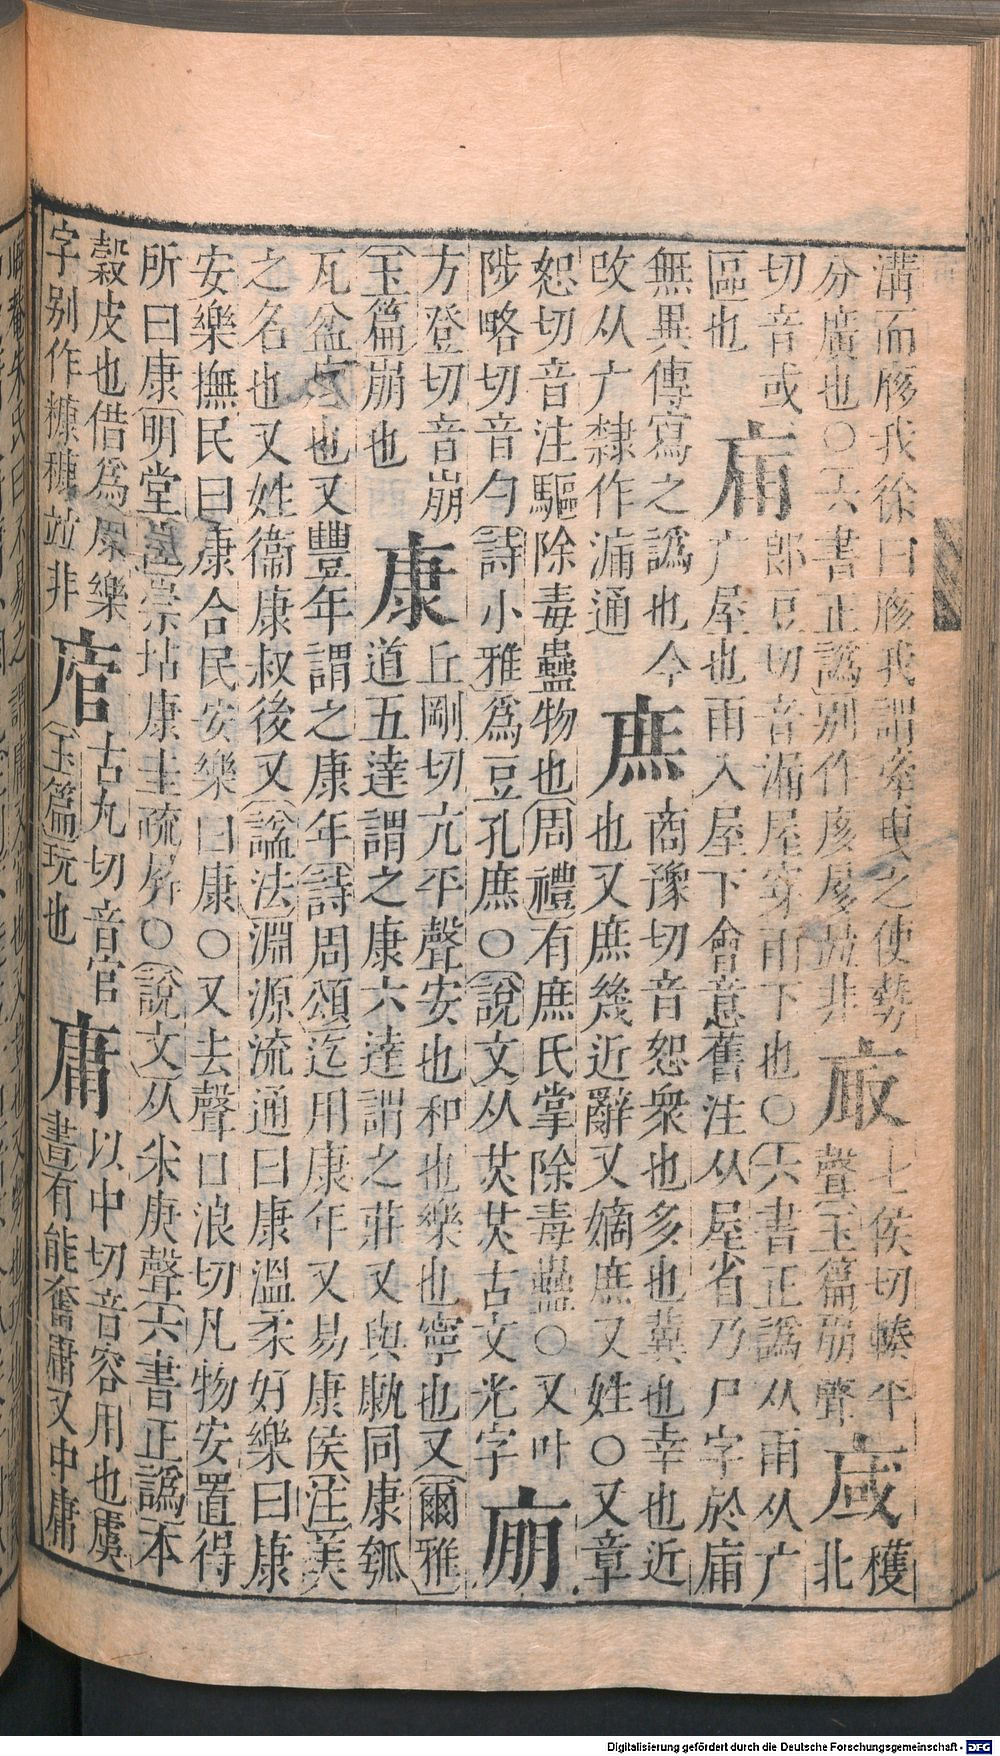 溝而廖我徐曰廖我謂牽曳之使勢 七侯切輳平 穫
分廣也〇六書正譌別作㢋㢋並非 㕍 聲玉篇崩聲 㦽 北
切音或 郎豆切音漏屋穿雨下也〇六書正譌从雨从广
區也 㔷 广屋也雨入屋下會意舊注从屋省乃尸字於㢊
無異傳寫之譌也今 商豫切音恕衆也多也冀也幸也近
改从广隸作漏通 庶 也又庶幾近辭又嫡庶又姓〇又章
恕切音注驅除毒蠱物也周禮有庶氏掌除毒蠱〇又叶
陟略切音勺詩小雅爲豆孔庶〇說文从炗炗古文光字 㡮
方登切音崩 丘剛切亢平聲安也和也樂也寧也又爾雅
玉篇崩也 康 道五達謂之康六達謂之莊又與𤮊同康瓠
瓦盆底也又豐年謂之康年詩周頌迄用康年又易康侯注美
之名也又姓衞康叔後又諡法淵源流通曰康溫柔好樂曰康
安樂撫民曰康合民安樂曰康〇又去聲口浪切凡物安置得
所曰康明堂位崇坫康圭疏屏〇說文从米庚聲六書正譌本
穀皮也借爲康樂 古丸切音官 以中切音容用也虞
字别作糠穅竝非 㡩 玉篇玩也 庸 書有能奮庸又中庸
Digitalisierung gefördert durch die Deutsche Forschungsgemeinschaft - DFG